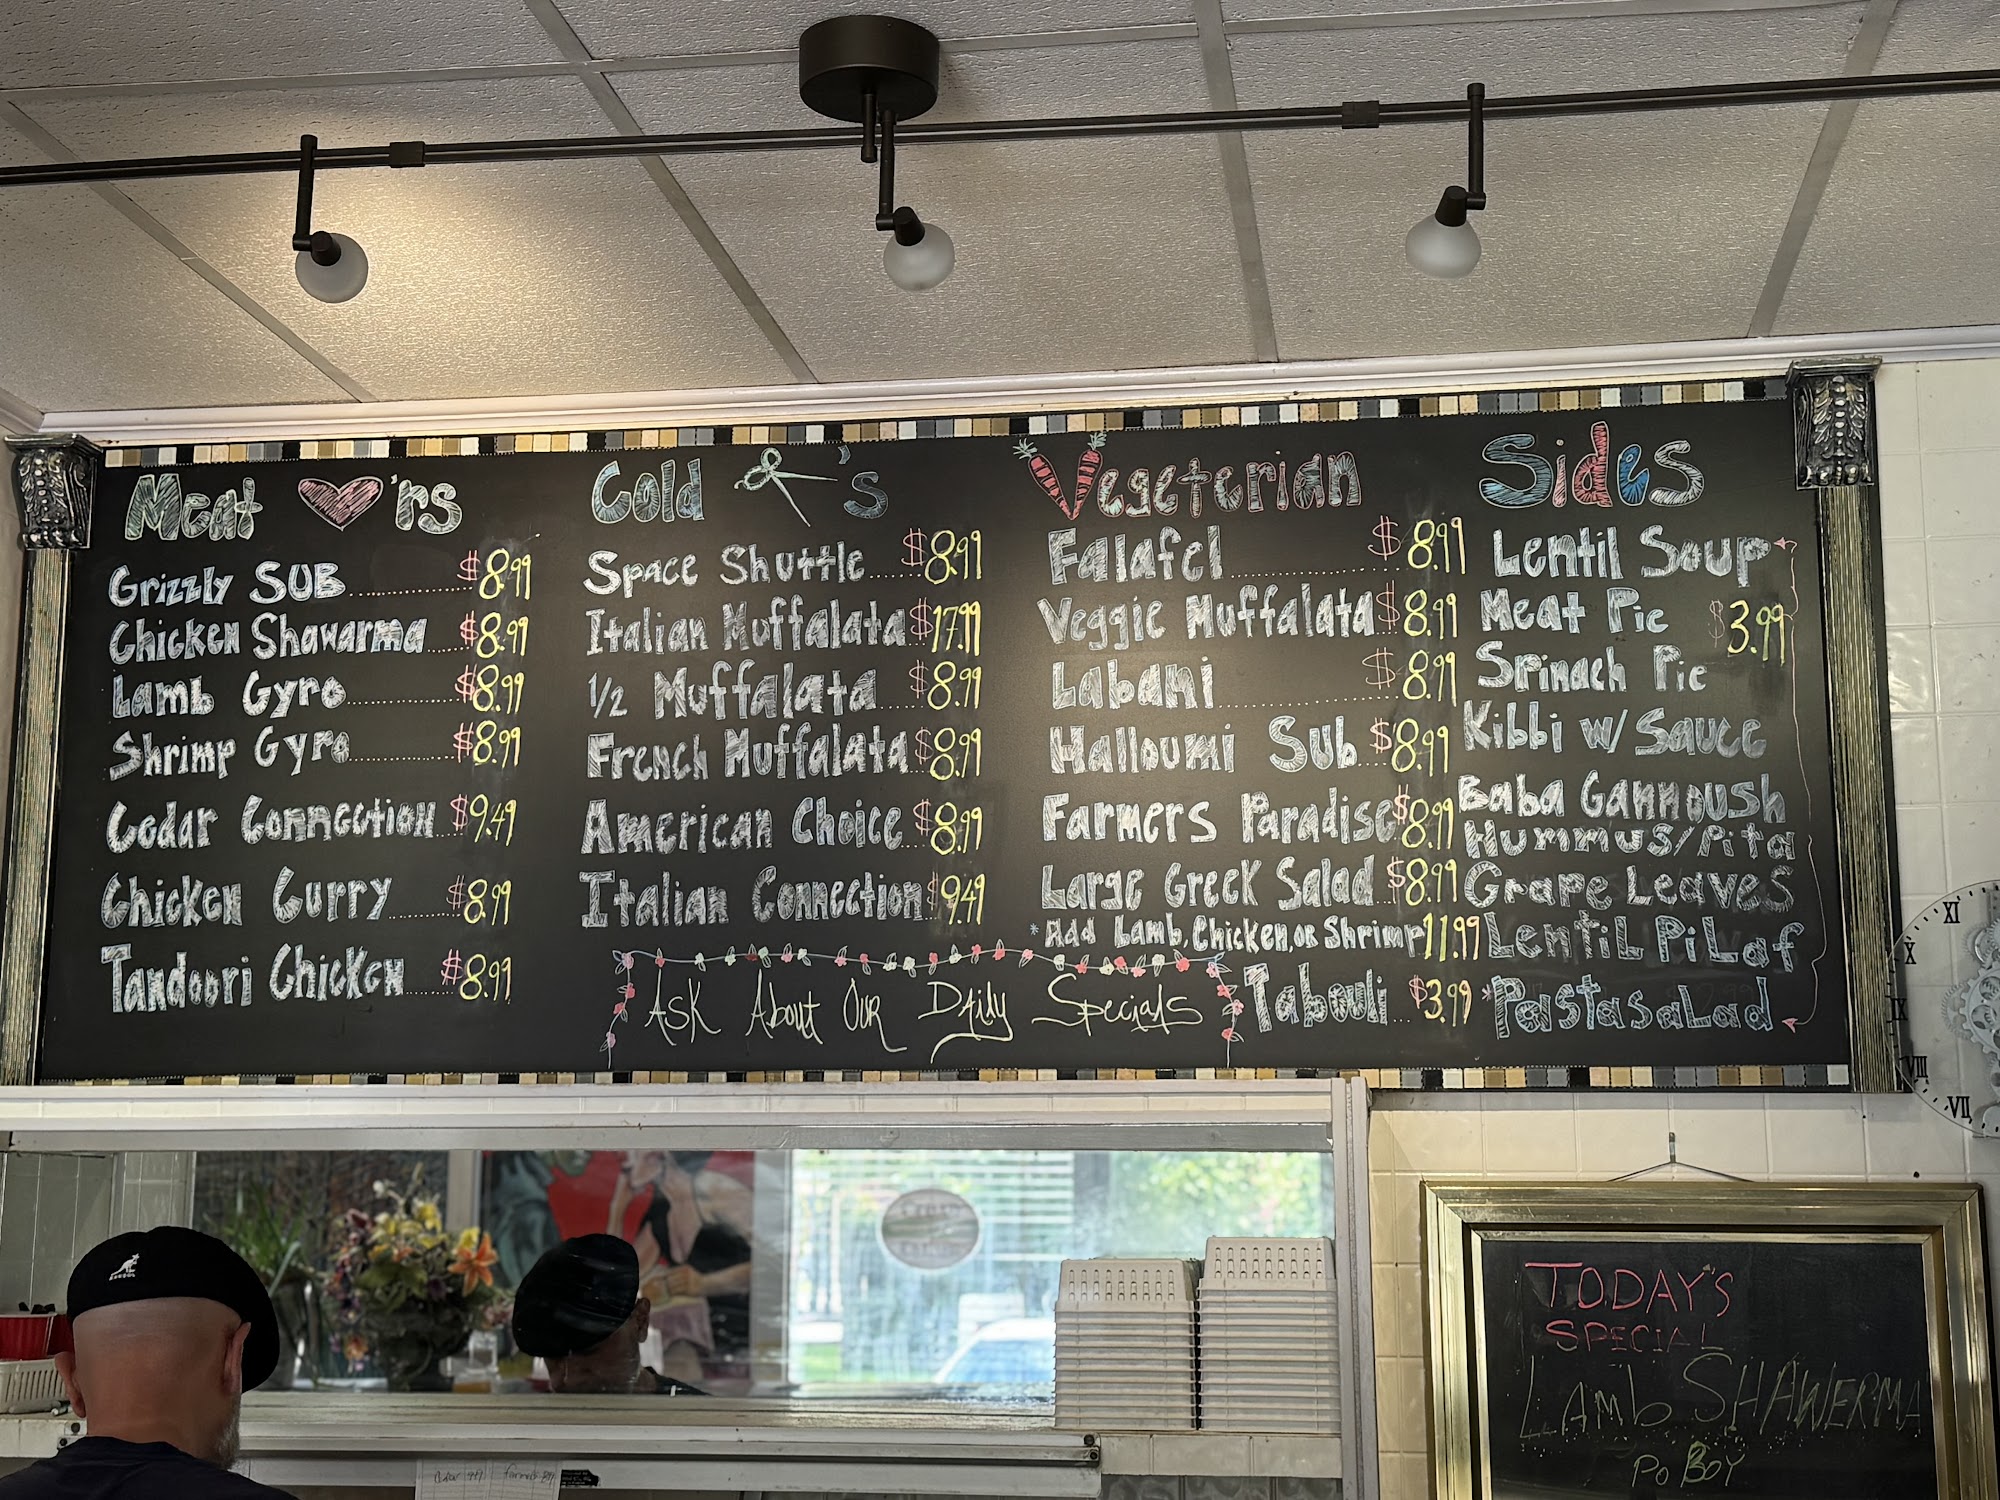 Meat 'rs
Grizzly SUB $8.99
Chicken Shawarma $8.99
Lamb Gyro $8.99
Shrimp Gyro $8.99
Cedar Connection $9.49
Chicken Curry $8.99
Tandoori Chicken $8.99
Cold 's
Space Shuttle $8.99
Italian Muffalata $17.99
1/2 Muffalata $8.99
French Muffalata $8.99
American Choice $8.99
Italian Connection $9.49
Ask About Our Daily Specials
Vegeterian
Falafel $8.99
Veggie Muffalata $8.99
Labani $8.99
Halloumi Sub $8.99
Farmers Paradise $8.99
Large Greek Salad $8.99
*Add Lamb, Chicken, or Shrimp 11.99
Tabouli $3.99
Sides
Lentil Soup
Meat Pie $3.99
Spinach Pie
Kibbi w/ Sauce
Baba Gannoush
Hummus/Pita
Grape Leaves
Lentil Pilaf
*Pasta salad
XI
X
IX
VIII
VII
KANGOL
TODAY'S
SPECIAL
LAMB SHAWERMA
PO BOY